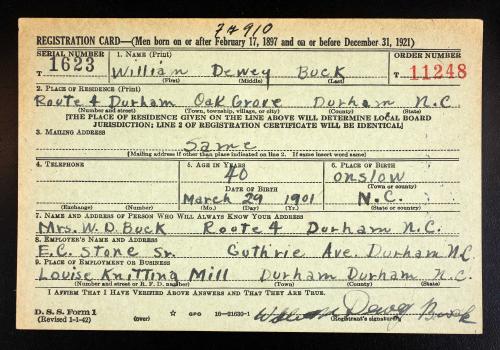 F#910
REGISTRATION CARD—(Men born on or after February 17, 1897 and on or before December 31, 1921)
SERIAL NUMBER 1. NAME (Print) ORDER NUMBER
T 1623 William Dewey Buck T 11248
(First) (Middle) (Last)
2. PLACE OF RESIDENCE (Print)
Route 4 Durham Oak Grove Durham N.C.
(Number and street) (Town, township, village, or city) (County) (State)
[THE PLACE OF RESIDENCE GIVEN ON THE LINE ABOVE WILL DETERMINE LOCAL BOARD
JURISDICTION; LINE 2 OF REGISTRATION CERTIFICATE WILL BE IDENTICAL]
3. MAILING ADDRESS
Same
[Mailing address if other than place indicated on line 2. If same insert word same]
4. TELEPHONE 5. AGE IN YEARS 6. PLACE OF BIRTH
40 onslow
DATE OF BIRTH (Town or county)
March 29 1901 N.C.
(Exchange) (Number) (Mo.) (Day) (Yr.) (State or country)
7. NAME AND ADDRESS OF PERSON WHO WILL ALWAYS KNOW YOUR ADDRESS
Mrs. W. D. Buck Route 4 Durham N.C.
8. EMPLOYER'S NAME AND ADDRESS
E.C. Stone Sr. Guthrie Ave. Durham N.C.
9. PLACE OF EMPLOYMENT OR BUSINESS
Louise Knitting Mill Durham Durham N.C.
(Number and street or R. F. D. number) (Town) (County) (State)
I AFFIRM THAT I HAVE VERIFIED ABOVE ANSWERS AND THAT THEY ARE TRUE.
D. S. S. Form 1
(Revised 1-1-42) (over) ☆ GPO 16—21630-1 William Dewey Buck
(Registrant's signature)